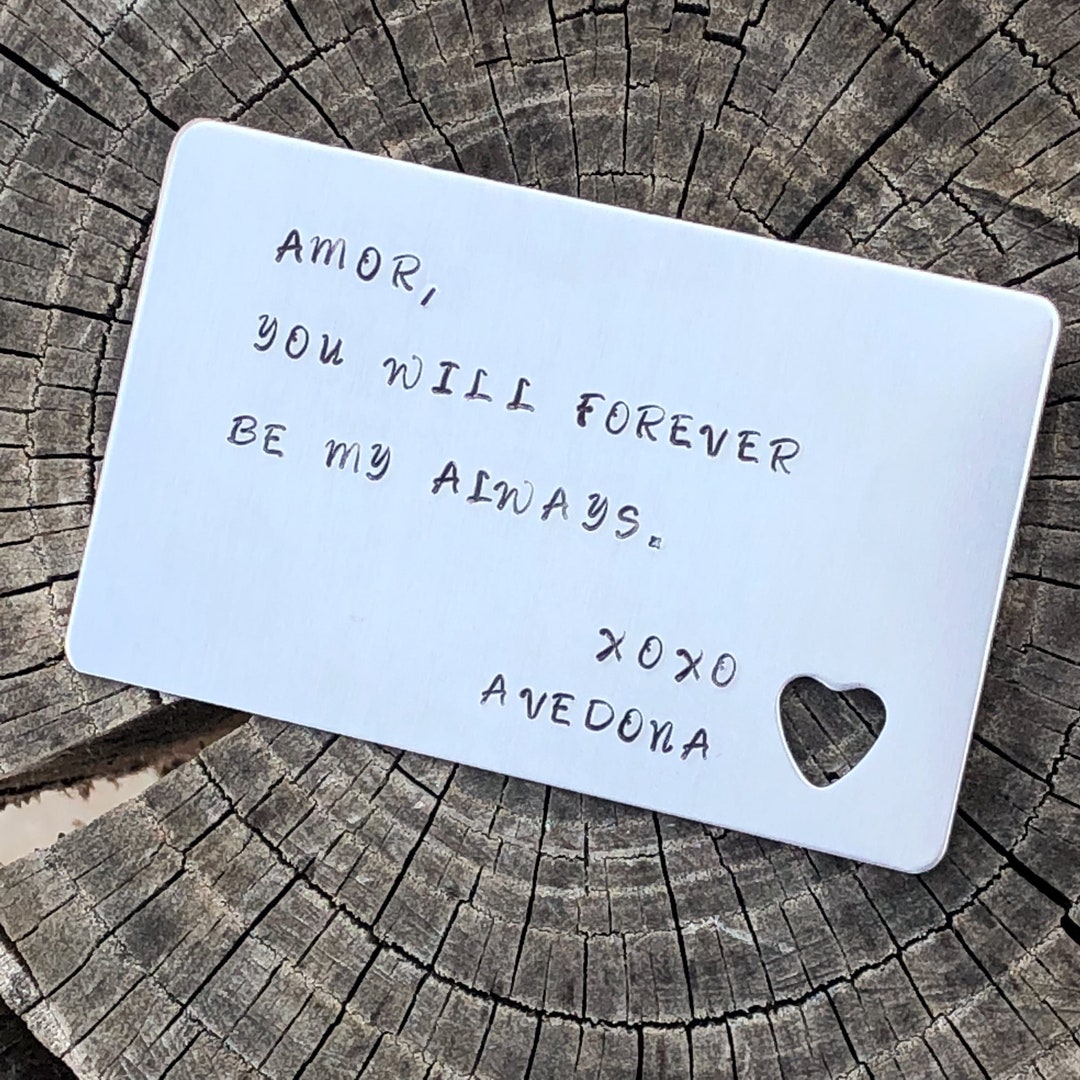 AMOR,
YOU WILL FOREVER
BE MY ALWAYS.
XOXO
AVEDONA